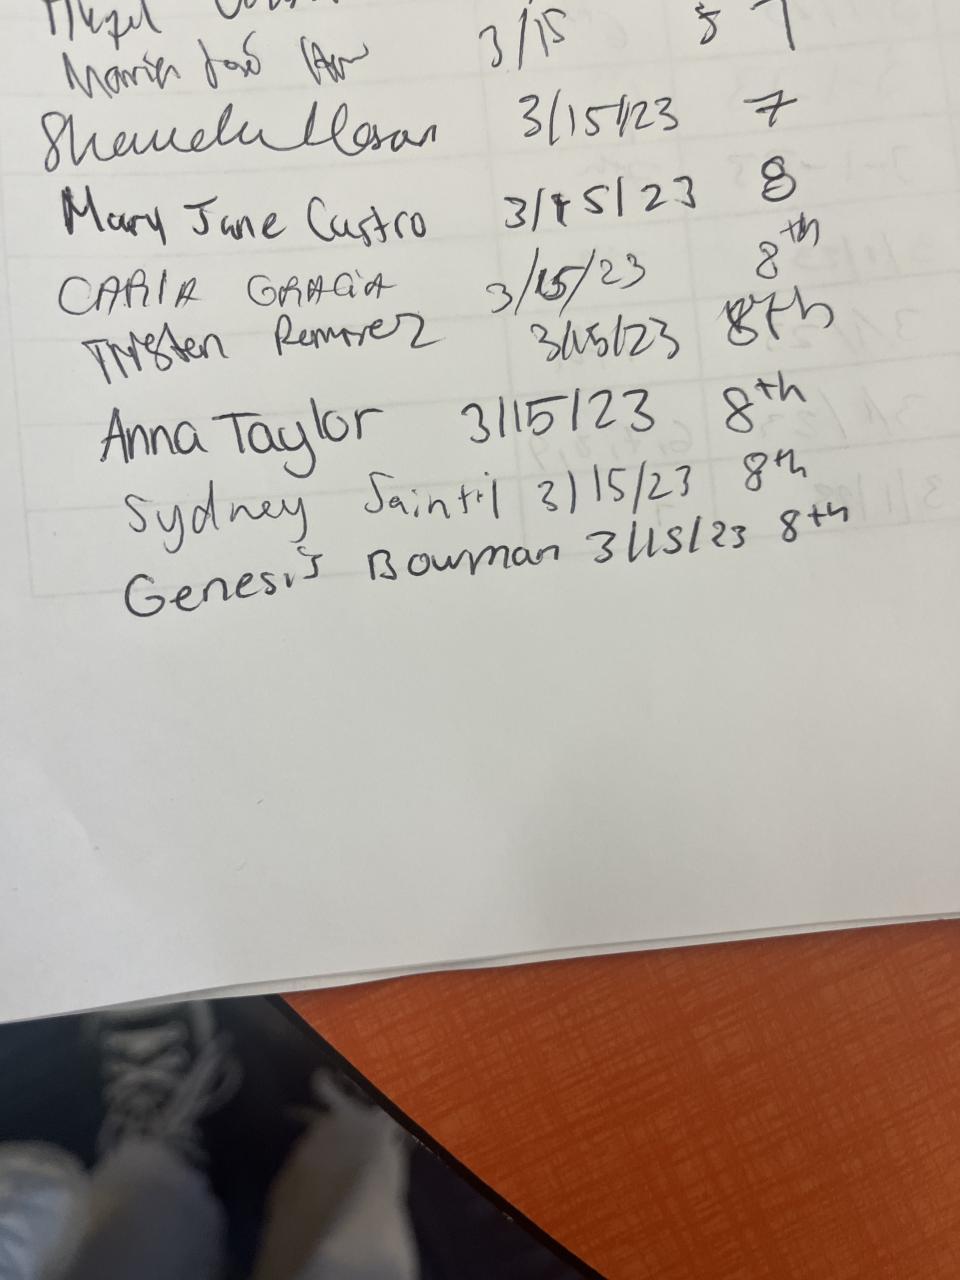 3/15 8 7
3/15/23 7
Mary Jane Castro 3/15/23 8
CARIA GRACiA 3/15/23 8th
Tristen Remirez 3/15/23 8th
Anna Taylor 3/15/23 8th
Sydney Saintil 3/15/23 8th
Genesis Bowman 3/15/23 8th